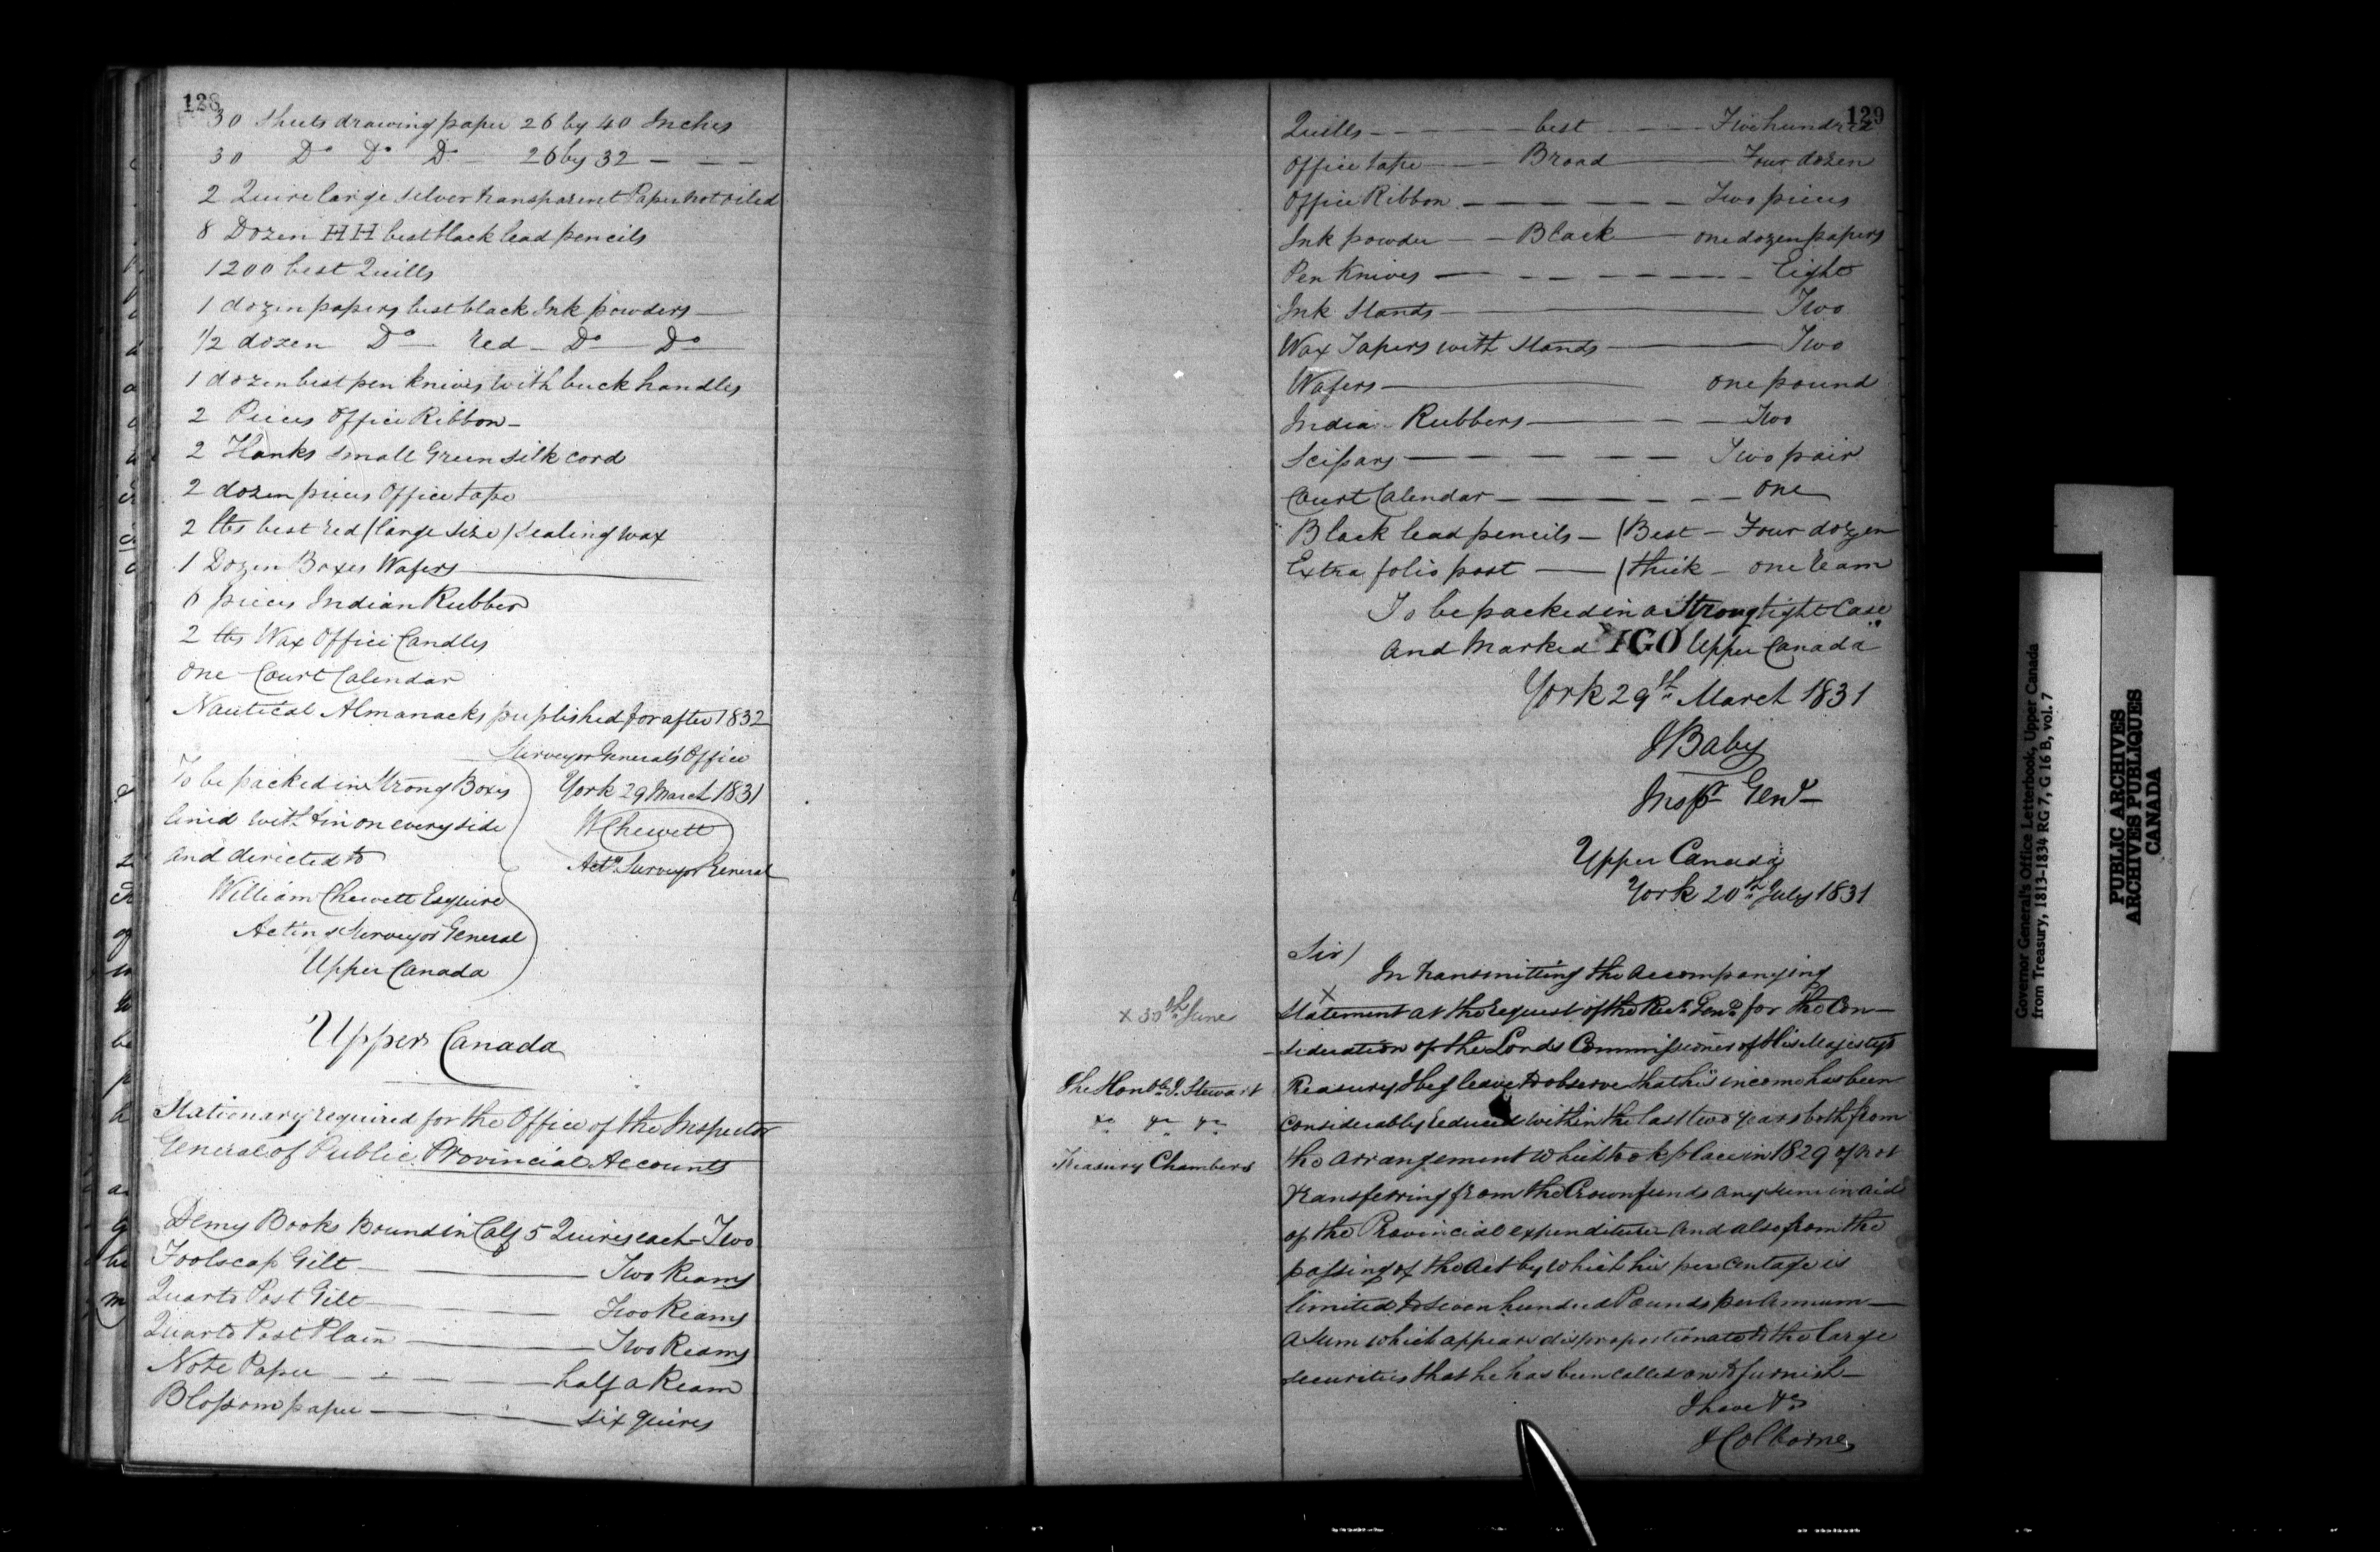 128
30 Sheets drawing paper 26 by 40 Inches
30 Do Do Do 26 by 32 — — —
2 Quire large silver transparent Paper not oiled
8 Dozen HH best black lead pencils
1200 best Quills
1 dozen papers best black Ink powders —
1/2 dozen Do — red — Do — Do
1 dozen best pen knives with buck handles
2 Pieces Office Ribbon —
2 Hanks small Green silk cord
2 dozen pieces Office tape
2 lbs best red (large size) sealing wax
1 Dozen Boxes Wafers —
6 pieces Indian Rubber
2 lbs Wax Office Candles
One Court Calendar
Nautical Almanacks puplished for after 1832
Surveyor General's Office
York 29 March 1831
W Chewett
Actg. Surveyor General
To be packed in Strong Boxes
lined with tin on every side
and directed to
William Chewett Esquire
Acting Surveyor General
Upper Canada
Upper Canada
Stationary required for the Office of the Inspector
General of Public Provincial Accounts
Demy Books bound in Calf 5 Quires each — Two
Foolscap Gilt — Two Reams
Quarto Post Gilt — Two Reams
Quarto Post Plain — Two Reams
Note Paper — half a Ream
Blossom paper — six quires
129
Quills — best — Five hundred
Office tape — Broad — Four dozen
Office Ribbon — Two pieces
Ink powder — Black — one dozen papers
Pen Knives — Eight
Ink Stands — Two
Wax Tapers with Stands — Two
Wafers — one pound
India Rubbers — Two
Scissars — Two pair
Court Calendar — One
Black lead pencils — (Best — Four dozen
Extra folio post — (thick — one Ream
To be packed in a Strong tight Case
and Marked "IGO Upper Canada"
York 29th March 1831
J Baby
Inspr Genl
Upper Canada
York 20th July 1831
Sir/
In transmitting the accompanying
x
x 30th June
Statement at the request of the Recr. Genl. for the Con-
-sideration of the Lords Commissioners of His Majesty's
The Honble. J. Stewart
Treasury I beg leave to observe that his income has been
&c &c &c
considerably reduced within the last two years both from
Treasury Chambers
the arrangement which took place in 1829 of not
transferring from the Crown funds any sum in aid
of the Provincial expenditure and also from the
passing of the Act by which his per centage is
limited to Seven hundred Pounds per Annum —
a sum which appears disproportionate to the large
securities that he has been called on to furnish —
I have &c
J Colborne
Governor General's Office Letterbook, Upper Canada
from Treasury, 1813-1834 RG 7, G 16 B, vol. 7
PUBLIC ARCHIVES
ARCHIVES PUBLIQUES
CANADA